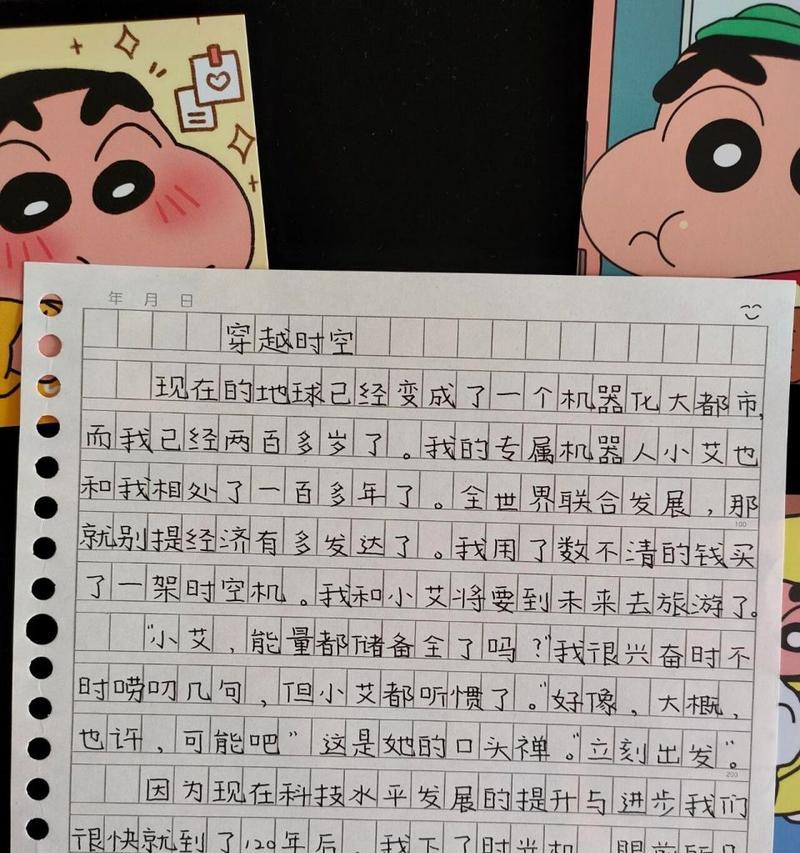 年 月 日
穿越时空
现在的地球已经变成了一个机器化大都市,
而我已经两百多岁了。我的专属机器人小艾也
和我相处了一百多年了。全世界联合发展,那
100
就别提经济有多发达了。我用了数不清的钱买
了一架时空机。我和小艾将要到未来去旅游了。
“小艾,能量都储备全了吗?”我很兴奋时不
时唠叨几句,但小艾都听惯了。“好像,大概,
也许,可能吧”这是她的口头禅。“立刻出发”。
200
因为现在科技水平发展的提升与进步我们
很快就到了120年后,我下了时光机